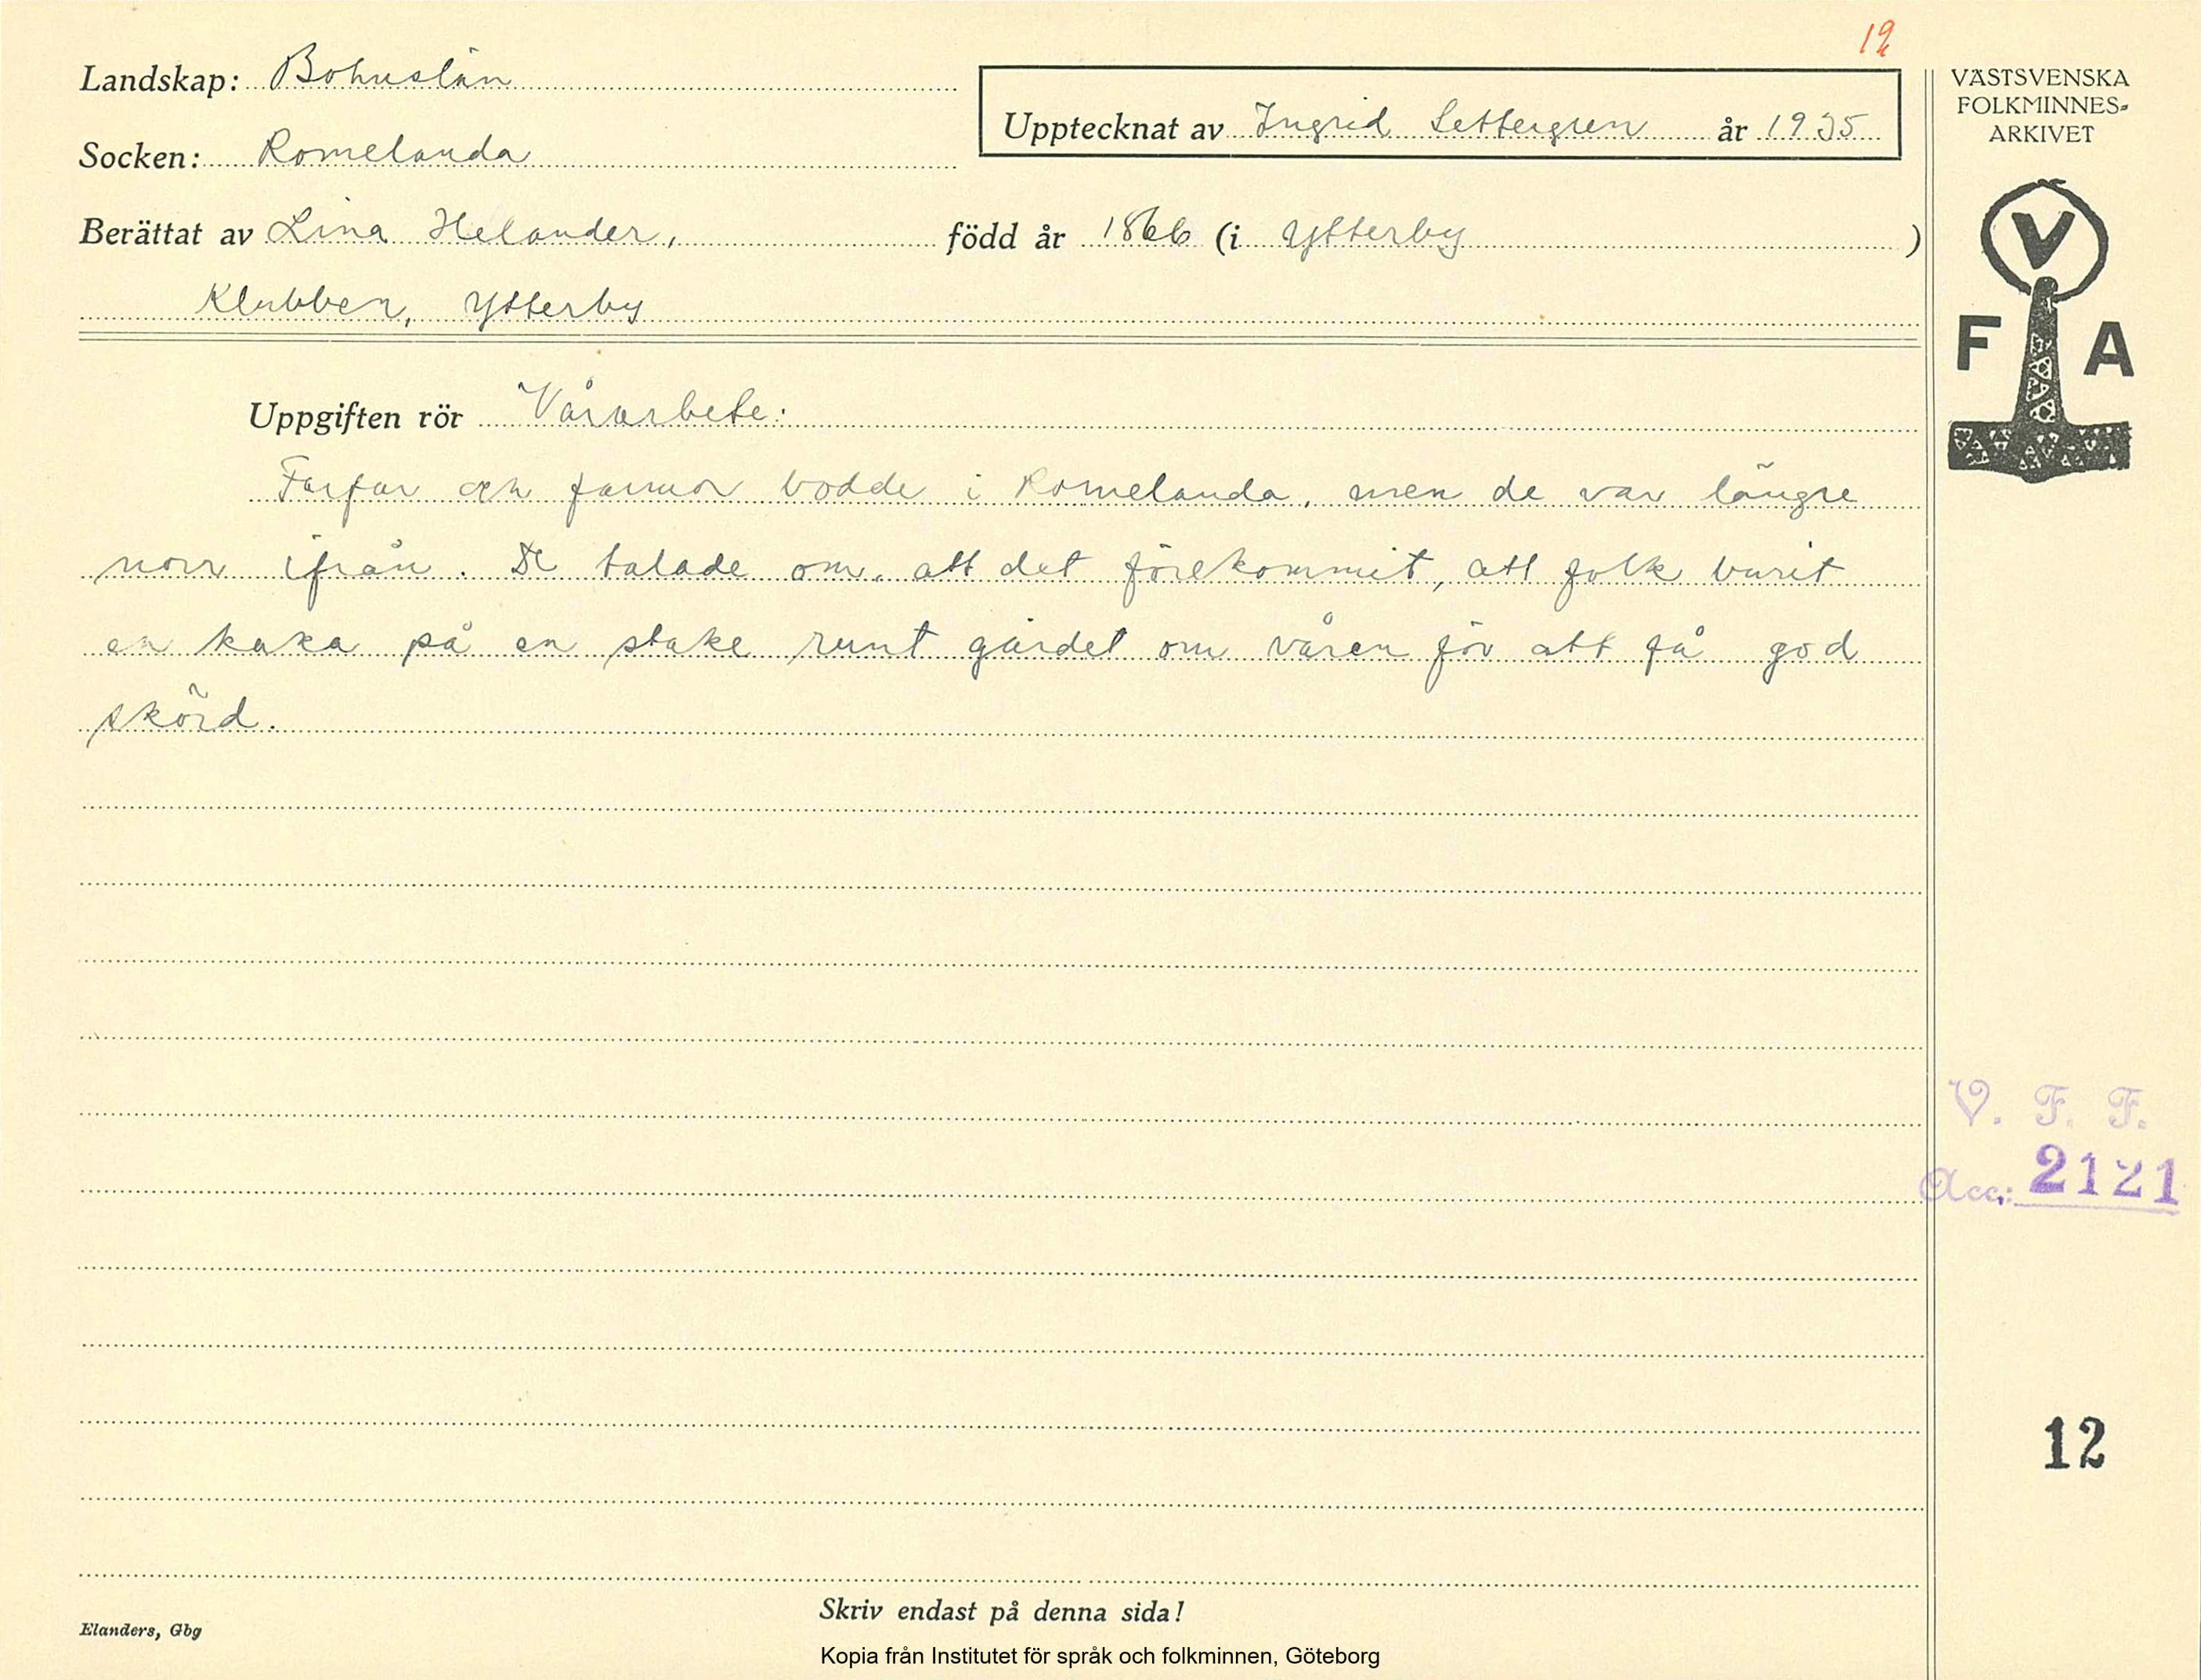 12
Landskap: Bohuslän
Upptecknat av Ingrid Settergren år 1935
Socken: Romelanda
Berättat av Lina Helander, född år 1866 (i Ytterby )
Klubben, Ytterby
Uppgiften rör Vårarbete:
Farfar och farmor bodde i Romelanda, men de var längre
norr ifrån. De talade om, att det förekommit, att folk burit
en kaka på en stake runt gärdet om våren för att få god
skörd.
VÄSTSVENSKA
FOLKMINNES-
ARKIVET
V
F A
V. F. F.
Acc: 2121
12
Skriv endast på denna sida!
Elanders, Gbg
Kopia från Institutet för språk och folkminnen, Göteborg